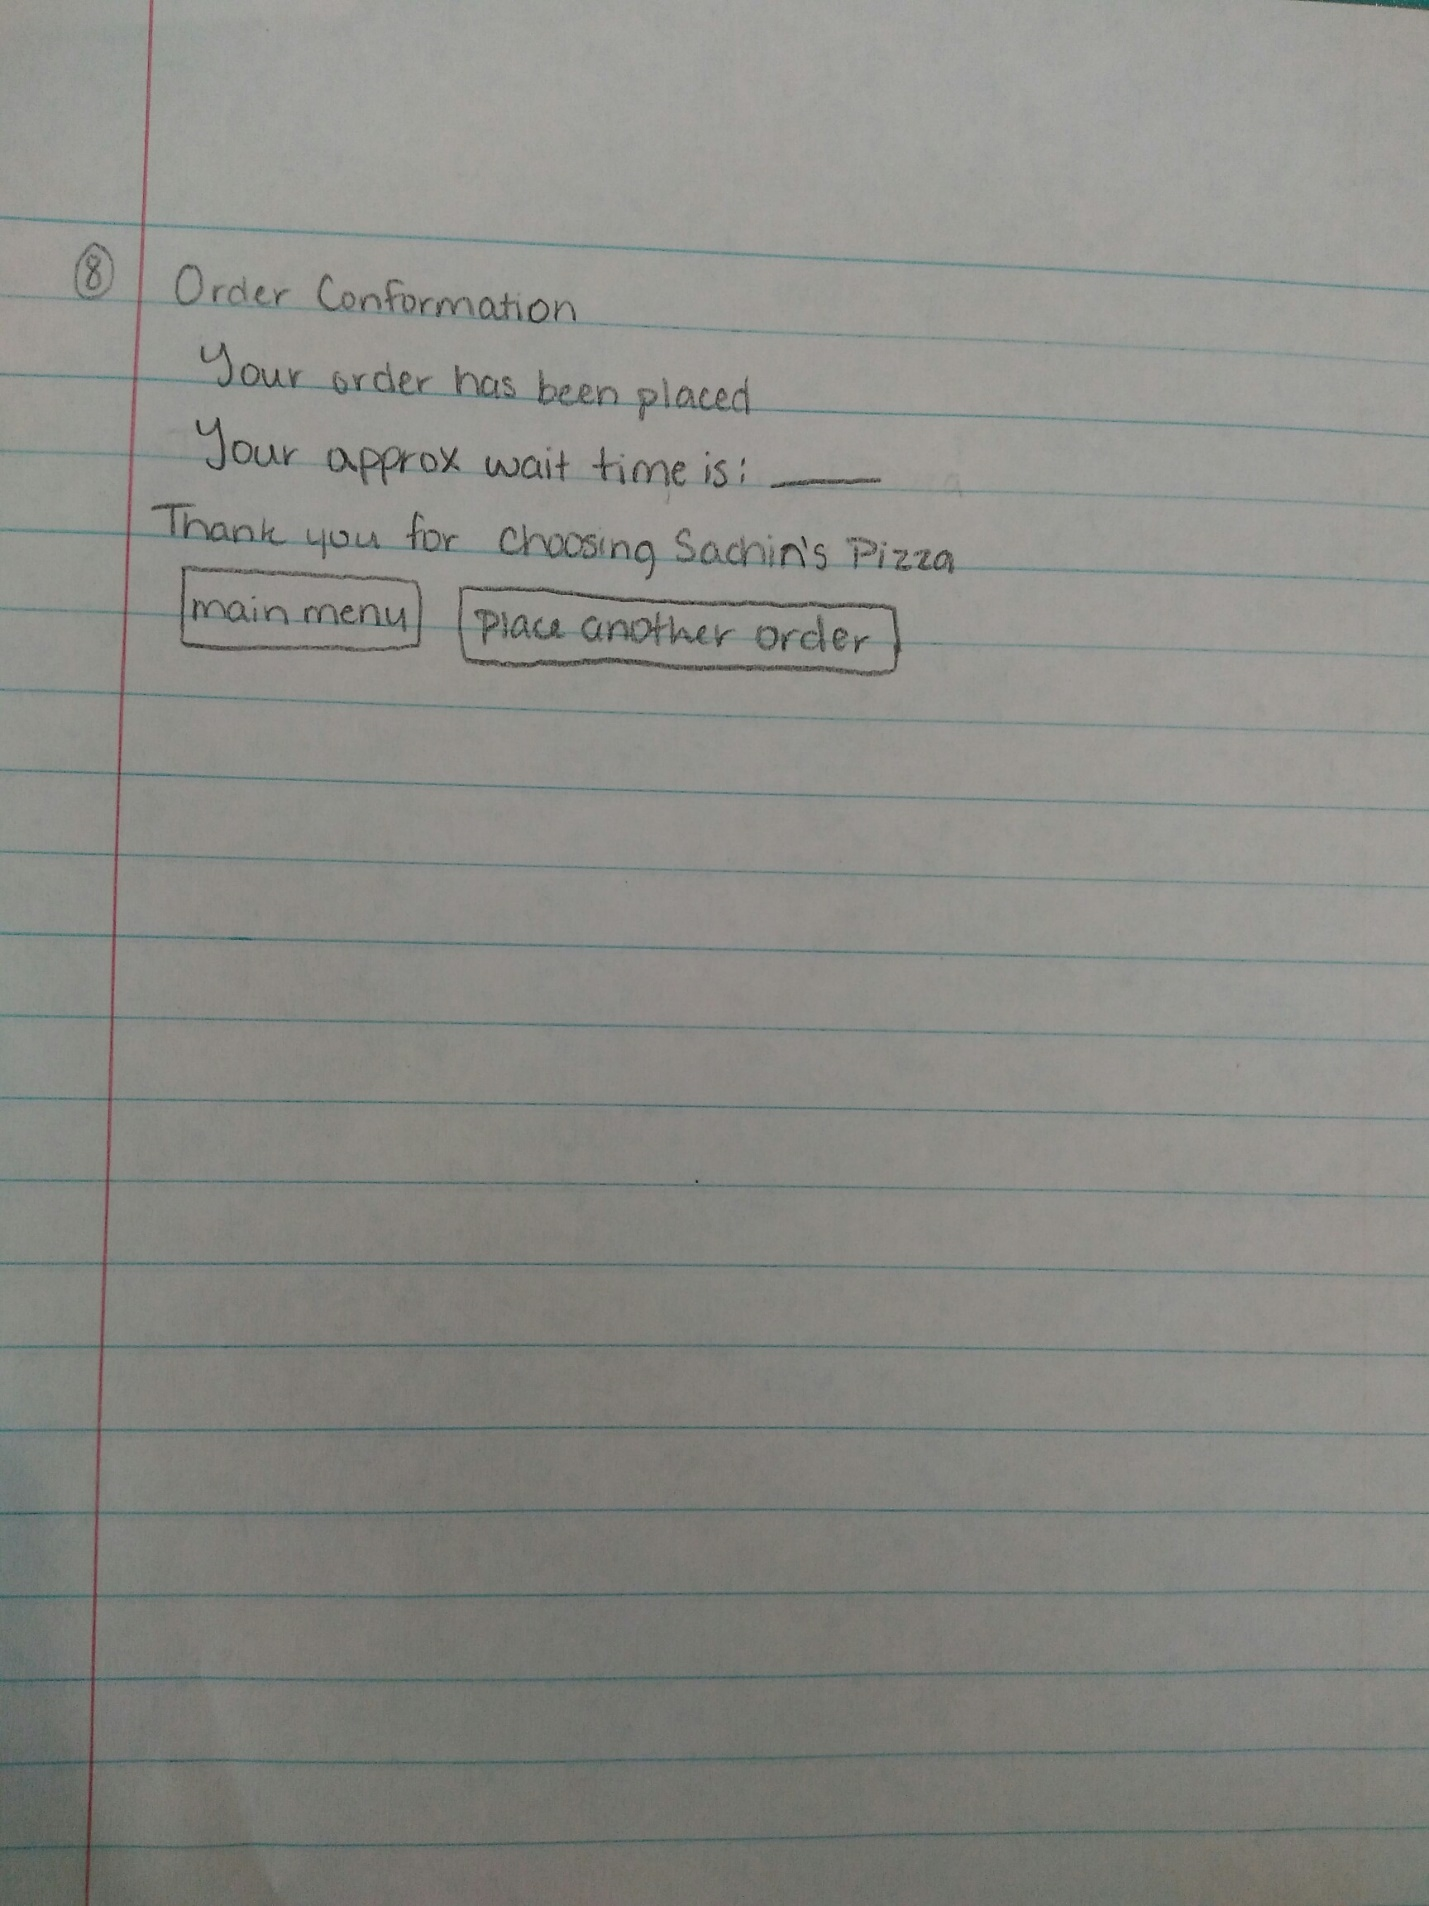 8 Order Conformation
Your order has been placed
Your approx wait time is: ____
Thank you for choosing Sachin's Pizza
main menu place another order